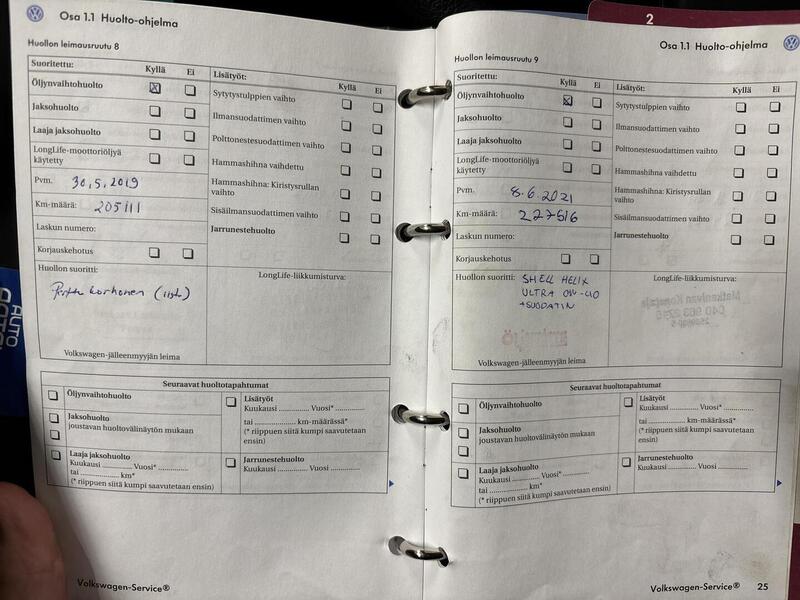 Osa 1.1 Huolto-ohjelma
Huollon leimausruutu 8
Suoritettu:
Kyllä
Ei
Öljynvaihtohuolto
Jaksohuolto
Laaja jaksohuolto
LongLife-moottoriöljyä
käytetty
Pvm. 30.5.2019
Km-määrä: 205111
Laskun numero:
Korjauskehotus
Huollon suoritti:
Korhonen
Volkswagen-jälleenmyyjän leima
Lisätyöt:
Kyllä
Ei
Sytytystulppien vaihto
Ilmansuodattimen vaihto
Polttonestesuodattimen vaihto
Hammashihna vaihdettu
Hammashihna: Kiristysrullan
vaihto
Sisäilmansuodattimen vaihto
Jarrunestehuolto
LongLife-liikkumisturva:
Seuraavat huoltotapahtumat
Öljynvaihtohuolto
Jaksohuolto
joustavan huoltovälinäytön mukaan
Laaja jaksohuolto
Kuukausi ............ Vuosi* ............
tai ............... km*
(* riippuen siitä kumpi saavutetaan ensin)
Lisätyöt
Kuukausi ............ Vuosi* ............
tai ............... km-määrässä*
(* riippuen siitä kumpi saavutetaan
ensin)
Jarrunestehuolto
Kuukausi ............ Vuosi ............
Volkswagen-Service®
2
Osa 1.1 Huolto-ohjelma
Huollon leimausruutu 9
Suoritettu:
Kyllä
Ei
Öljynvaihtohuolto
Jaksohuolto
Laaja jaksohuolto
LongLife-moottoriöljyä
käytetty
Pvm. 8.6.2021
Km-määrä: 227516
Laskun numero:
Korjauskehotus
Huollon suoritti: SHELL HELIX
ULTRA 0W-40
+SUODATIN
Volkswagen-jälleenmyyjän leima
Lisätyöt:
Kyllä
Ei
Sytytystulppien vaihto
Ilmansuodattimen vaihto
Polttonestesuodattimen vaihto
Hammashihna vaihdettu
Hammashihna: Kiristysrullan
vaihto
Sisäilmansuodattimen vaihto
Jarrunestehuolto
LongLife-liikkumisturva:
Seuraavat huoltotapahtumat
Öljynvaihtohuolto
Jaksohuolto
joustavan huoltovälinäytön mukaan
Laaja jaksohuolto
Kuukausi ............ Vuosi* ............
tai ............... km*
(* riippuen siitä kumpi saavutetaan ensin)
Lisätyöt
Kuukausi ............ Vuosi* ............
tai ............... km-määrässä*
(* riippuen siitä kumpi saavutetaan
ensin)
Jarrunestehuolto
Kuukausi ............ Vuosi ............
Volkswagen-Service®
25
AUTO